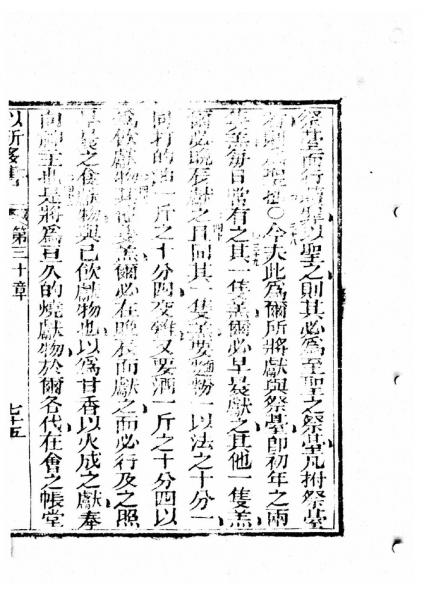 祭臺而行贖罪以聖之則其必為至聖之祭臺凡拊祭臺
者則為聖也○今夫此為爾所將獻與祭臺即初年之兩
隻羔每日常有之其一隻羔爾必早晨獻之其他一隻羔
爾必晚夜獻之且同其一隻羔要麵粉一以法之十分一
同打的油一斤之十分四交雜又要酒一斤之十分四以
為飲獻物其他隻羔爾必在晚夜而獻之而必行及之照
早晨之食獻物與己飲獻物也以為甘香以火成之獻奉
向神主也是將為亘久的燒獻物於爾各代在會之帳堂
以所多書 第三十章 七十五